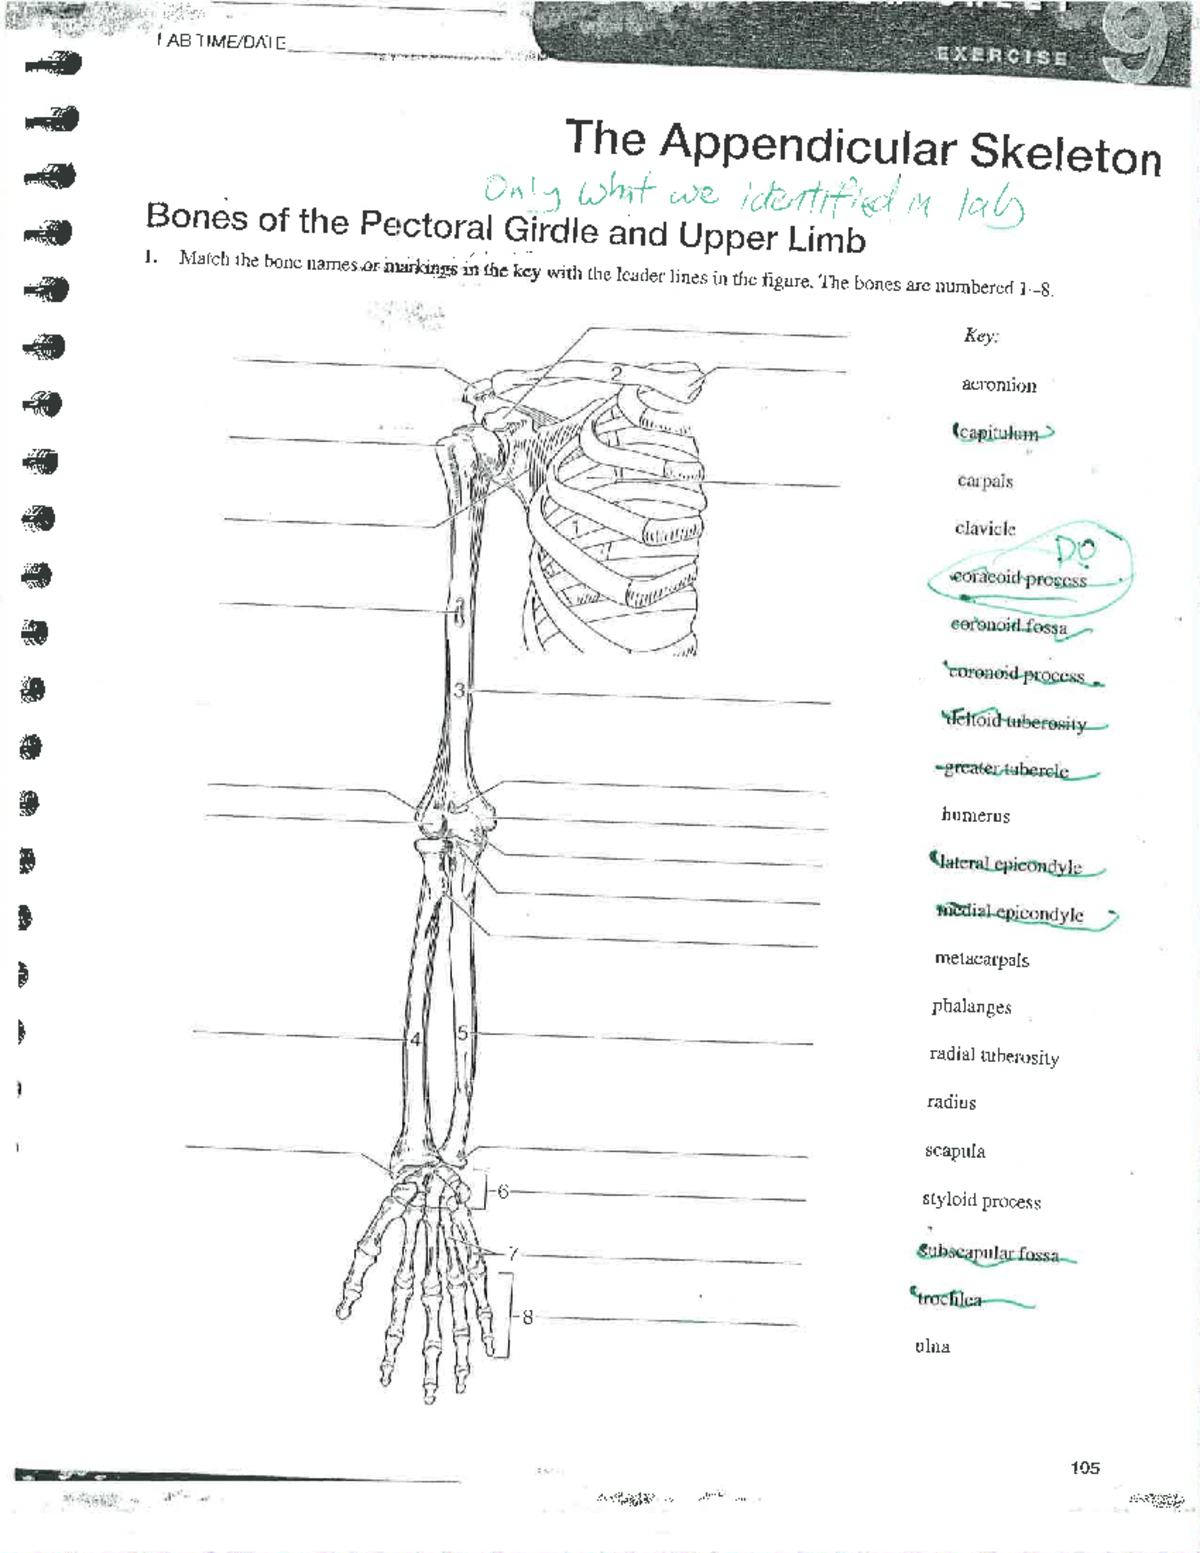 LAB TIME/DATE
EXERCISE
9
The Appendicular Skeleton
Only what we identified in lab
Bones of the Pectoral Girdle and Upper Limb
1. Match the bone names or markings in the key with the leader lines in the figure. The bones are numbered 1–8.
Key:
acromion
capitulum
carpals
clavicle
DO
coracoid process
coronoid fossa
coronoid process
deltoid tuberosity
greater tubercle
humerus
lateral epicondyle
medial epicondyle
metacarpals
phalanges
radial tuberosity
radius
scapula
styloid process
subscapular fossa
trochlea
ulna
2
1
3
4
5
6
7
8
105